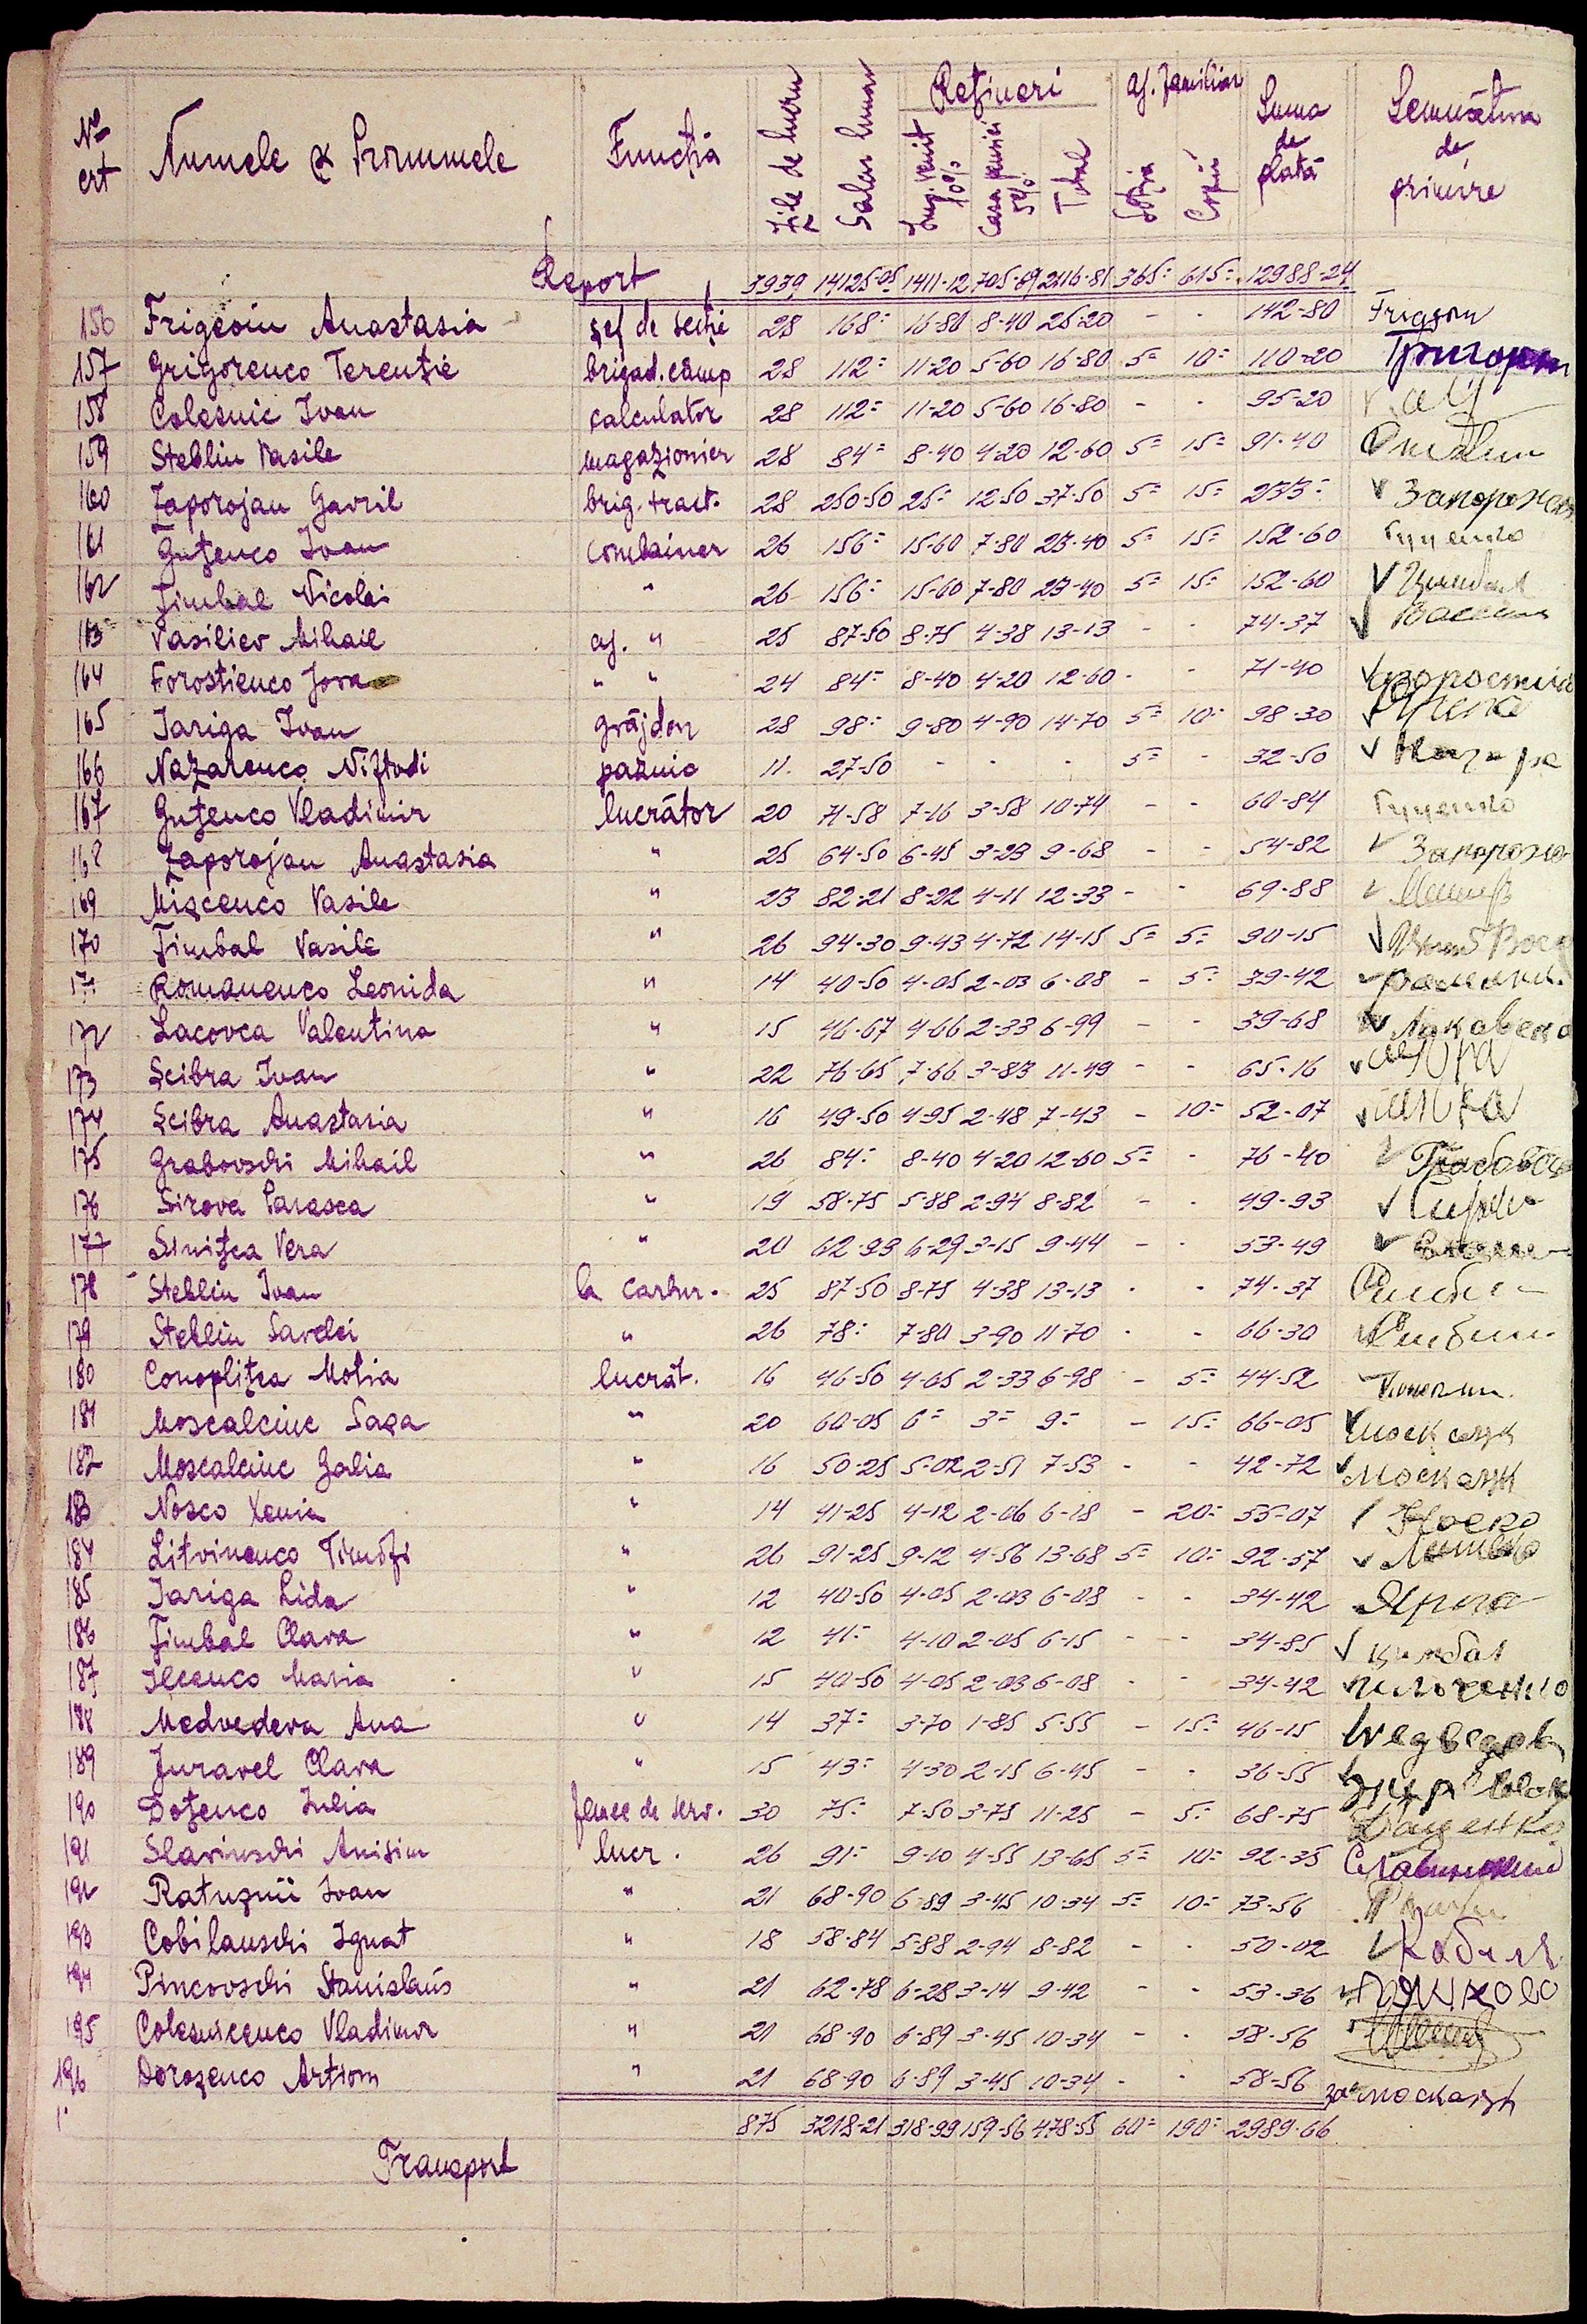 No crt Numele & Pronumele Funcția Zile de lucru Salar lunar Rețineri Imp. venit 10% Casa pensiei 5% Total Aj. familiar Soția Copii Suma de plată Semnătura de primire
Report 3939 14125-05 1411-12 705-69 2116-81 365= 615= 12988-24
156 Frigioiu Anastasia șef de secție 28 168= 16-80 8-40 25-20 - - 142-80
157 Grigorenco Terenție brigad. câmp 28 112= 11-20 5-60 16-80 5= 10= 110-20
158 Colesnic Ivan calculator 28 112= 11-20 5-60 16-80 - - 95-20
159 Stebliu Vasile magazionier 28 84= 8-40 4-20 12-60 5= 15= 91-40
160 Zaporojan Gavril brig. tract. 28 250-50 25= 12-50 37-50 5= 15= 233= Запорожан
161 Guțenco Ivan combainer 26 156= 15-60 7-80 23-40 5= 15= 152-60 Гуценко
162 Țimbal Nicolai " 26 156= 15-60 7-80 23-40 5= 15= 152-60
163 Vasiliev Mihail aj. " 25 87-50 8-75 4-38 13-13 - - 74-37
164 Forostienco Jora " " 24 84= 8-40 4-20 12-60 - - 71-40
165 Iariga Ivan grăjdar 28 98= 9-80 4-90 14-70 5= 10= 98-30
166 Nazarenco Niftodi paznic 11 27-50 - - - 5= - 32-50
167 Guțenco Vladimir lucrător 20 71-58 7-16 3-58 10-74 - - 60-84 Гуценко
168 Zaporojan Anastasia " 25 64-50 6-45 3-23 9-68 - - 54-82
169 Mișcenco Vasile " 23 82-21 8-22 4-11 12-33 - - 69-88
170 Țimbal Vasile " 26 94-30 9-43 4-72 14-15 5= 5= 90-15
171 Romanenco Leonida " 14 40-50 4-05 2-03 6-08 - 5= 39-42
172 Lacovca Valentina " 15 46-67 4-66 2-33 6-99 - - 39-68
173 Scibra Ivan " 22 76-65 7-66 3-83 11-49 - - 65-16
174 Scibra Anastasia " 16 49-50 4-95 2-48 7-43 - 10= 52-07
175 Grabovschi Mihail " 26 84= 8-40 4-20 12-60 5= - 76-40
176 Sirova Parasca " 19 58-75 5-88 2-94 8-82 - - 49-93
177 Sinițca Vera " 20 62-93 6-29 3-15 9-44 - - 53-49
178 Stebliu Ivan la carbur. 25 87-50 8-75 4-38 13-13 - - 74-37
179 Stebliu Savelei " 26 78= 7-80 3-90 11-70 - - 66-30
180 Conoplițca Motia lucrăt. 16 46-50 4-65 2-33 6-98 - 5= 44-52
181 Moscalciuc Sașa " 20 60-05 6= 3= 9= - 15= 66-05
182 Moscalciuc Galia " 16 50-25 5-02 2-51 7-53 - - 42-72
183 Nosco Xenia " 14 41-25 4-12 2-06 6-18 - 20= 55-07 Носко
184 Litvinenco Timofi " 26 91-25 9-12 4-56 13-68 5= 10= 92-57
185 Iariga Lida " 12 40-50 4-05 2-03 6-08 - - 34-42
186 Țimbal Clara " 12 41= 4-10 2-05 6-15 - - 34-85 цимбал
187 Ilcenco Maria " 15 40-50 4-05 2-03 6-08 - - 34-42
188 Medvedeva Ana " 14 37= 3-70 1-85 5-55 - 15= 46-15
189 Juravel Clara " 15 43= 4-30 2-15 6-45 - - 36-55
190 Doțenco Iulia femee de serv. 30 75= 7-50 3-75 11-25 - 5= 68-75 Даценко
191 Slavinschi Anisim lucr. 26 91= 9-10 4-55 13-65 5= 10= 92-35
192 Ratușnîi Ivan " 21 68-90 6-89 3-45 10-34 5= 10= 73-56
193 Cobilanschi Ignat " 18 58-84 5-88 2-94 8-82 - - 50-02
194 Pincovschi Stanislaus " 21 62-78 6-28 3-14 9-42 - - 53-36
195 Colesnicenco Vladimir " 21 68-90 6-89 3-45 10-34 - - 58-56
196 Doroșenco Artiom " 21 68-90 6-89 3-45 10-34 - - 58-56
875 3218-21 318-99 159-56 478-55 60= 190= 2989-66
Transport